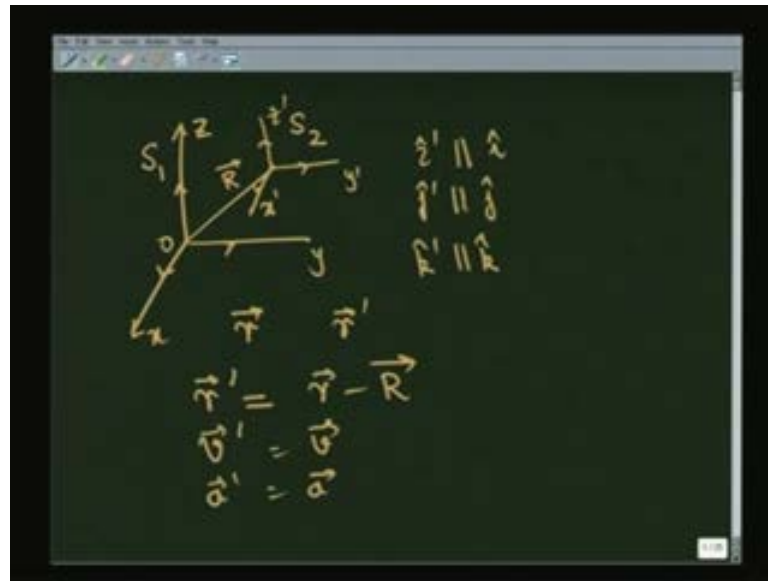 File Edit View Insert Actions Tools Help
z
S₁
z'
S₂
R⃗
y'
x'
O
y
x
î' ∥ î
ĵ' ∥ ĵ
k̂' ∥ k̂
r⃗ r⃗'
r⃗' = r⃗ − R⃗
v⃗' = v⃗
a⃗' = a⃗